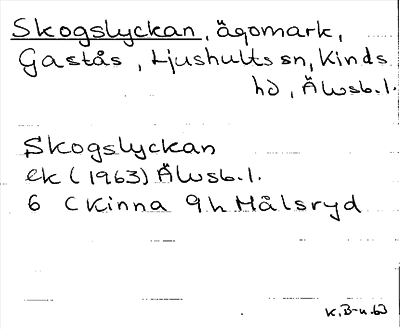 Skogslyckan, ägomark,
Gastås, Ljushults sn, Kinds
hd, Älvsb. l.
Skogslyckan
ek (1963) Älvsb. l.
6 C Kinna 9h Målsryd
K. B-n. 63